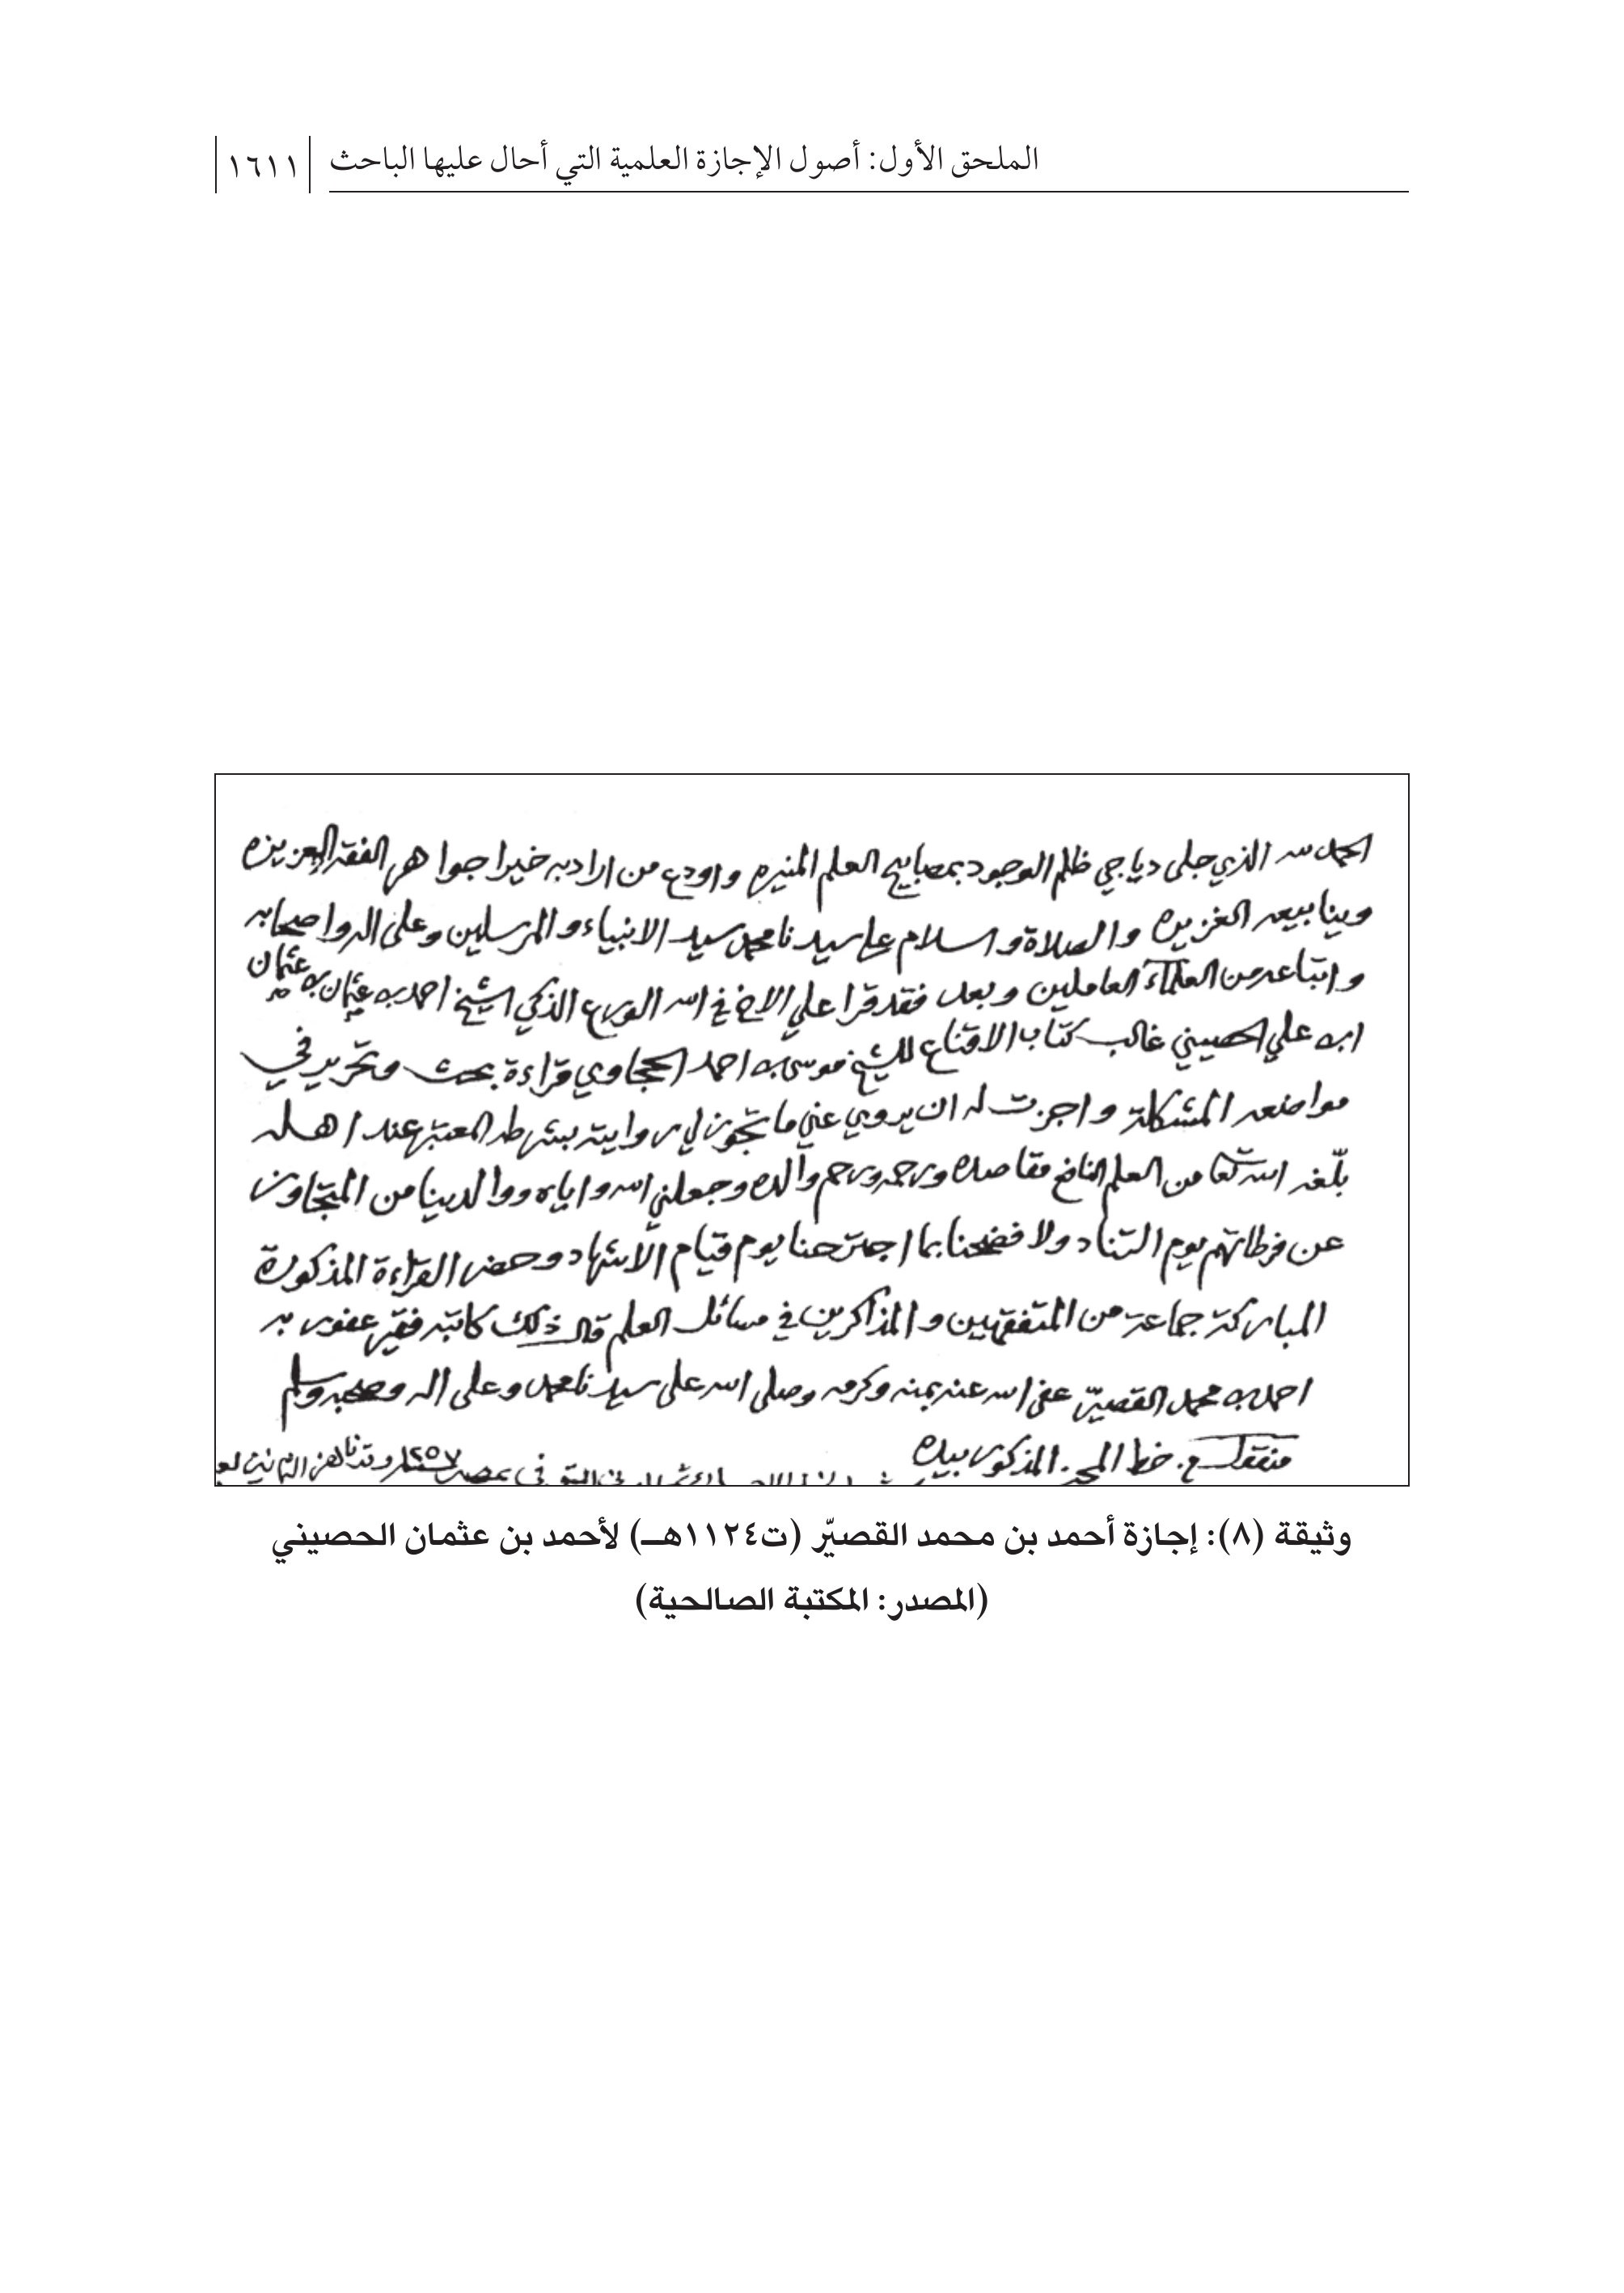 الملحق الأول: أصول الإجازة العلمية التي أحال عليها الباحث ١٦١١
الحمد لله الذي جلى دياجي ظلم الوجود بمصابيح العلم المنيره واودع من اراد به خيرا جواهر الفقه العزيزه
وينابيعه الغزيره والصلاة والسلام على سيدنا محمد سيد الانبياء والمرسلين وعلى اله واصحابه
واتباعه من العلماء العاملين وبعد فقد قرا علي الاخ في الله الورع الذكي الشيخ احمد بن عثمان بن عثمان
ابن علي الحصيني غالب كتاب الاقناع للشيخ موسى بن احمد الحجاوي قراءة بحث وتحرير في
مواضعه المشكلة واجزت له ان يروي عني ما تجوز لي روايته بشرطه المعتبر عند اهله
بلّغه الله تعالى من العلم النافع مقاصده ورحمه ورحم والده وجعلني الله واياه ووالدينا من المتجاوز
عن فرطاتهم يوم التناد ولا فضحنا بما اجترحنا يوم قيام الاشهاد وحضر القراءة المذكورة
المباركة جماعة من المتفقهين والمذاكرين في مسائل العلم قال ذلك كاتبه فقير عفو ربه
احمد بن محمد القصيّر عفى الله عنه بمنه وكرمه وصلى الله على سيدنا محمد وعلى اله وصحبه وسلم
خط المجيز المذكور بيده في
وثيقة (٨): إجازة أحمد بن محمد القصيّر (ت١١٢٤هـ) لأحمد بن عثمان الحصيني
(المصدر: المكتبة الصالحية)